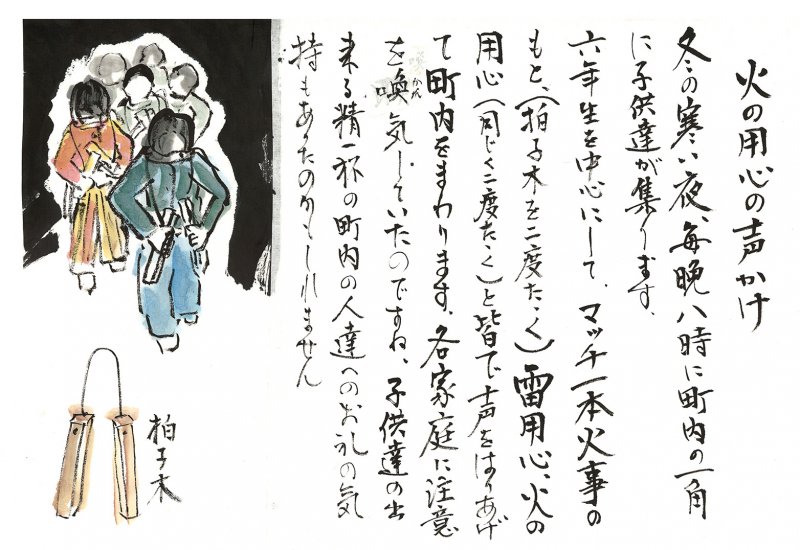 火の用心の声かけ
冬の寒い夜、毎晩八時に町内の一角
に子供達が集ります。
六年生を中心にして、マッチ一本火事の
もと、(拍子木を二度たゝく)雷用心、火の
用心(同じく二度たゝく)と皆で声をはりあげ
て町内をまわります。各家庭に注意
を喚気していたのですね、子供達の出
来る精一杯の町内の人達へのお礼の気
持もあったのかもしれません
拍子木